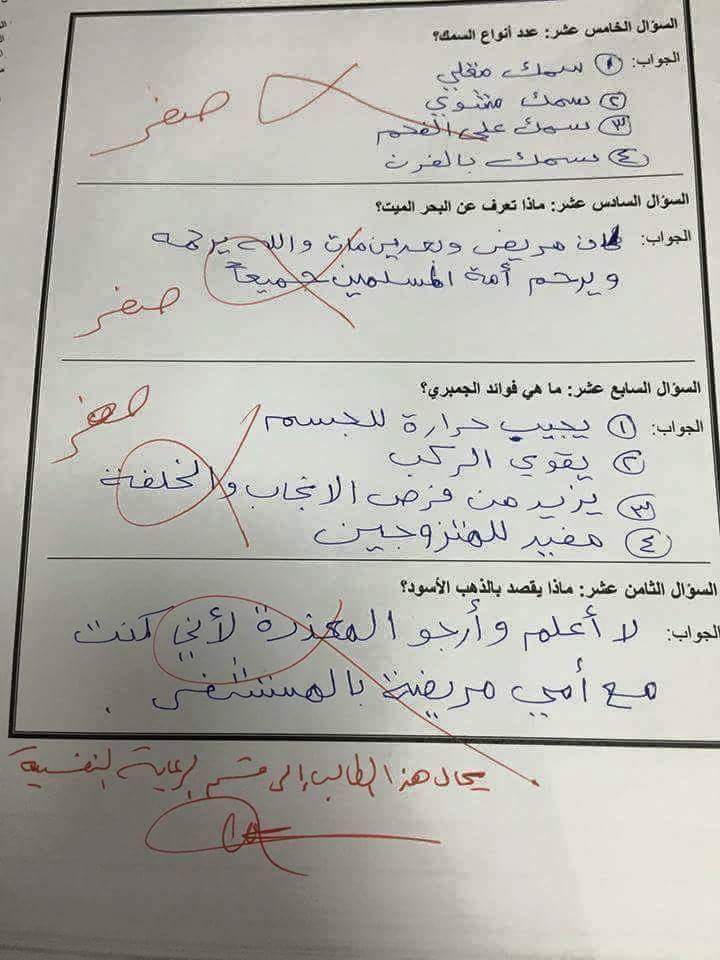 السؤال الخامس عشر: عدد أنواع السمك؟
الجواب: ١ سمك مقلي
٢ سمك مشوي
٣ سمك على الفحم
٤ سمك بالفرن
صفر
السؤال السادس عشر: ماذا تعرف عن البحر الميت؟
الجواب: كان مريض وبعدين مات والله يرحمه
ويرحم أمة المسلمين جميعاً
صفر
السؤال السابع عشر: ما هي فوائد الجمبري؟
صفر
الجواب: ١ يجيب حرارة للجسم
٢ يقوي الركب
٣ يزيد من فرص الانجاب والخلفة
٤ مفيد للمتزوجين
السؤال الثامن عشر: ماذا يقصد بالذهب الأسود؟
الجواب: لا أعلم وأرجو المعذرة لأني كنت
مع أمي مريضة بالمستشفى .
يحال هذا الطالب إلى قسم الرعاية النفسية